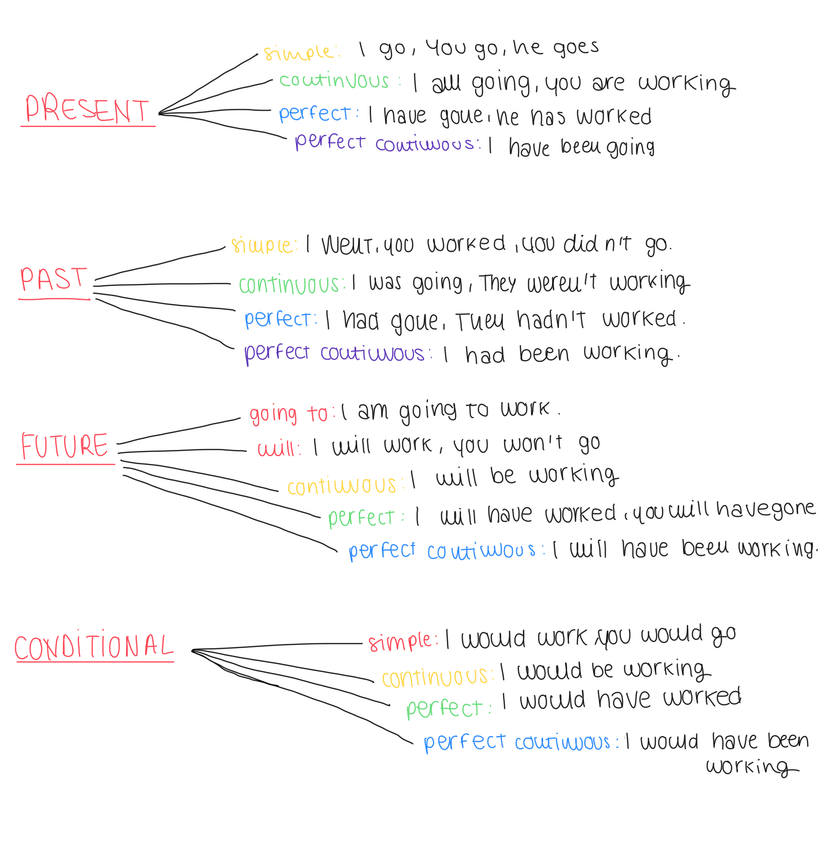 PRESENT
simple: I go, you go, he goes
continuous: I am going, you are working
perfect: I have gone, he has worked
perfect continuous: I have been going
PAST
simple: I went, you worked, you didn't go.
continuous: I was going, They weren't working
perfect: I had gone, They hadn't worked.
perfect continuous: I had been working.
FUTURE
going to: I am going to work.
will: I will work, you won't go
continuous: I will be working
perfect: I will have worked, you will have gone
perfect continuous: I will have been working.
CONDITIONAL
simple: I would work, you would go
continuous: I would be working
perfect: I would have worked
perfect continuous: I would have been
working